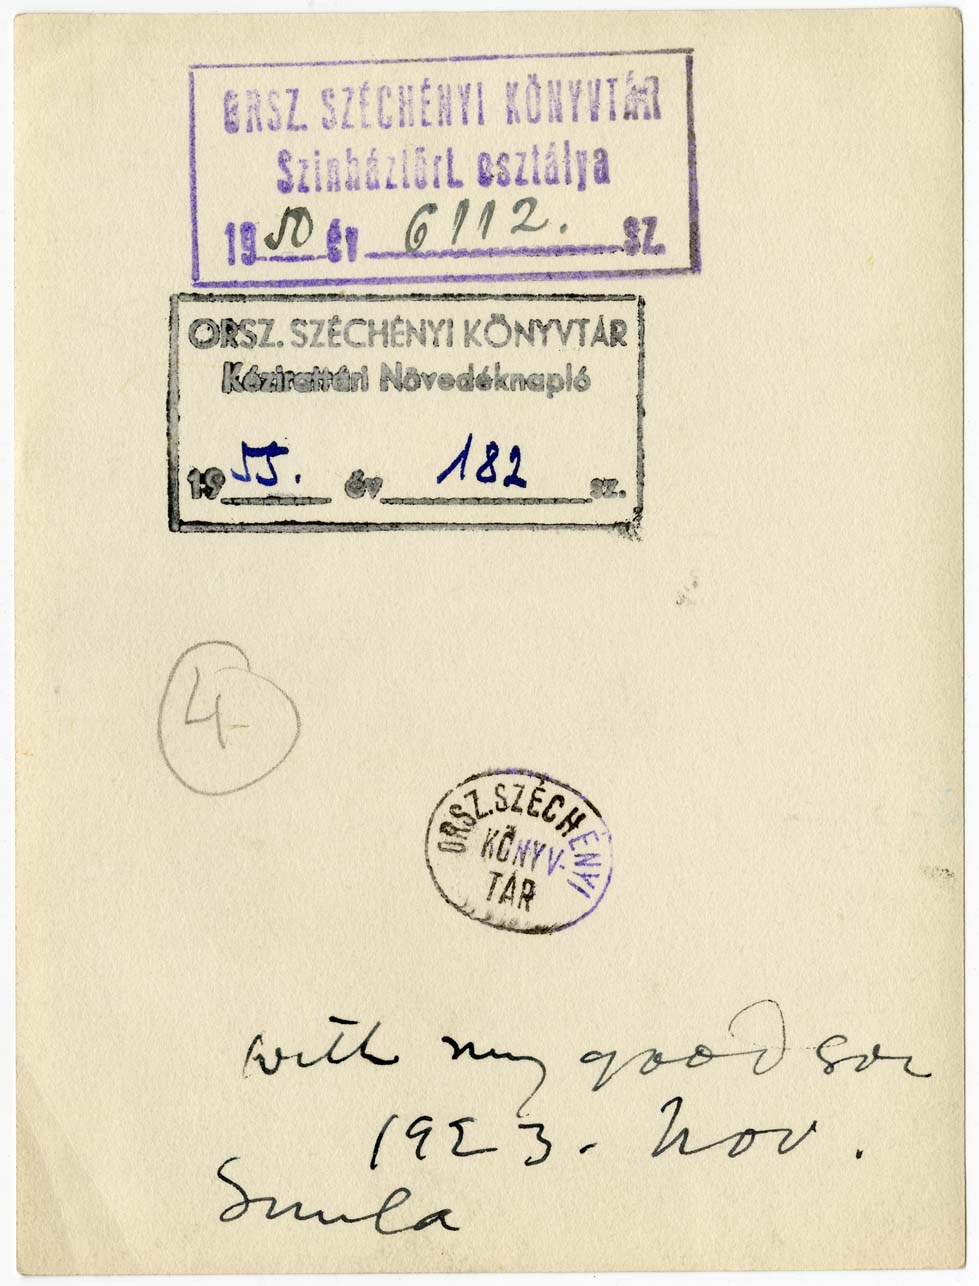 ORSZ. SZÉCHÉNYI KÖNYVTÁR
Szinháztört. osztálya
1950 év 6112. sz.
ORSZ. SZÉCHÉNYI KÖNYVTÁR
Kézirattári Növedéknapló
1955. év 182 sz.
4
ORSZ. SZÉCHÉNYI
KÖNYV-
TÁR
with my good son
1923. Nov.